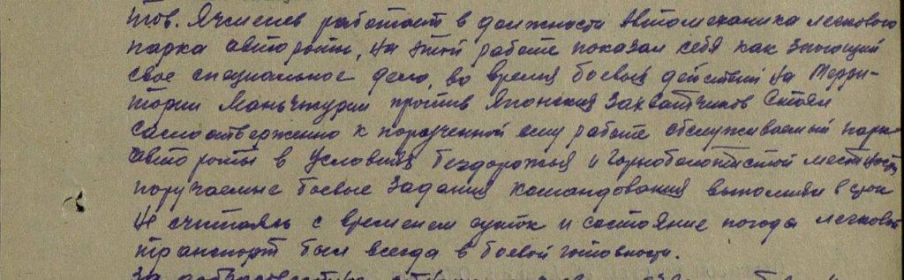 тов. Ячменев работает в должности Автомеханика легкового
парка авто роты, на этой работе показал себя как знающий
свое специальное дело, во время боевых действий на Терри-
тории Маньчжурии против Японских захватчиков
самоотверженно к порученной ему работе обслуживаемый парк
авто роты в условиях бездорожья и горноболотистой местности
поручаемые боевые задания командования выполнял в срок
не считаясь с временем суток и состояние погоды легковой
транспорт был всегда в боевой готовности.
За